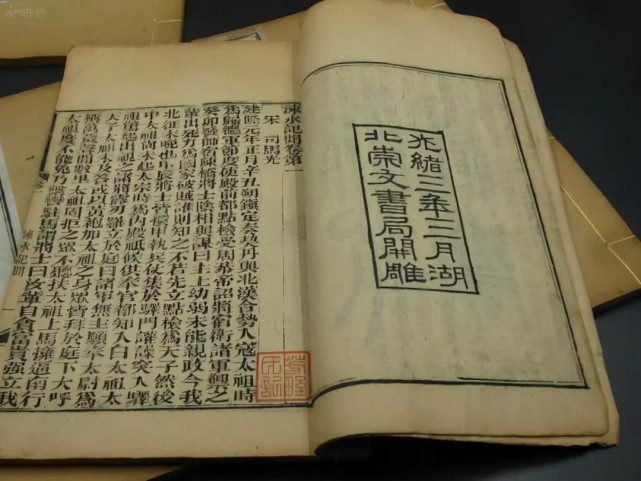 光緒三年三月湖
北崇文書局開雕
涑水記聞卷第
宋 司馬光
建隆元年正月辛丑朔鎮定奏契丹與北漢合勢入寇太祖時
為歸德軍節度使殿前都點檢受周恭帝詔將宿衛諸軍禦之
癸卯發師宿陳橋將士陰相與謀曰主上幼弱未能親政今我
輩出死力為國家破賊誰則知之不若先立點檢為天子然後
北征未晚也甲辰將士皆擐甲執兵仗集於驛門讙譟突入驛
中太祖尚未起太宗時為內殿祗候供奉官都知入白太祖太
祖驚起出視之諸將露刃羅立於庭曰諸軍無主願奉太尉為
天子太祖未及荅或以黃袍加太祖之身眾皆拜於庭下大呼
稱萬歲聲聞數里太祖固拒之眾不聽扶太祖上馬擁逼南行
太祖度不能免乃攬轡駐馬謂將士曰汝輩自貪富貴強立我
涑水記聞